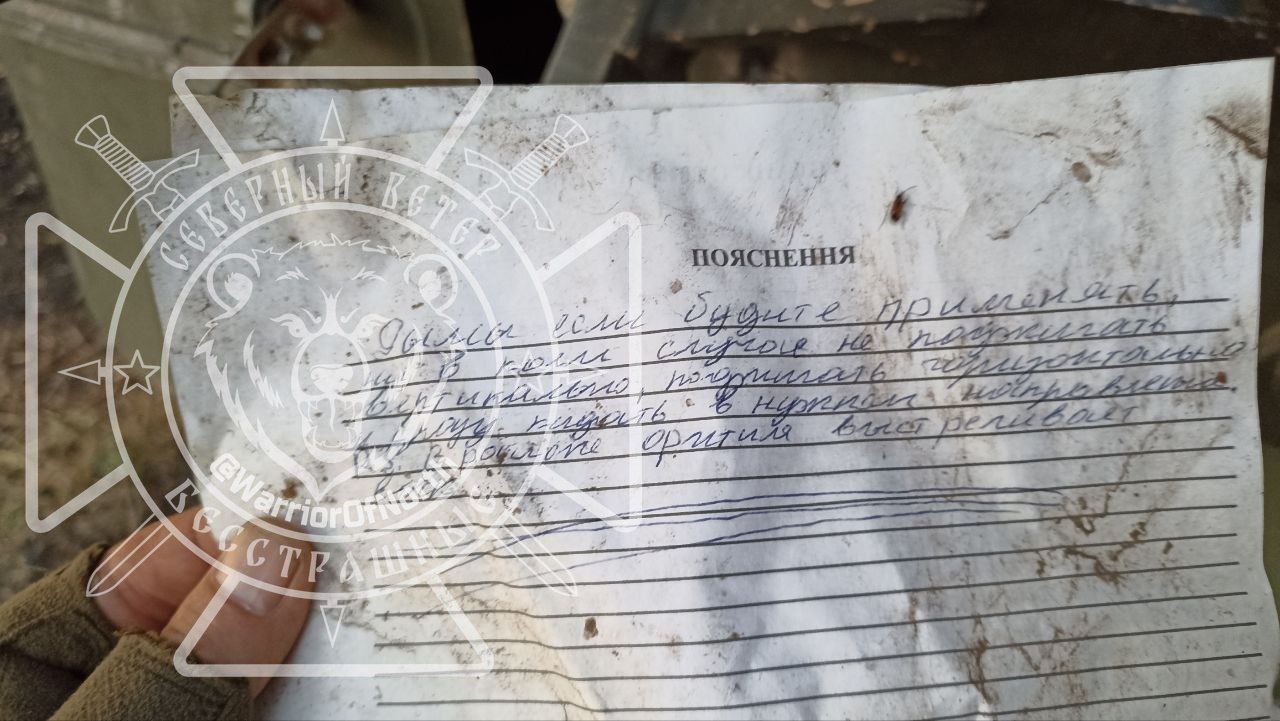 СЕВЕРНЫЙ ВЕТЕР
@WarriorOfNorth
БЕССТРАШНЫЙ
ПОЯСНЕННЯ
Дымы если будите применять,
ни в коем случае не поджигать
вертикально, поджигать горизонтально
и сразу кидать в нужном направлении
выстреливает